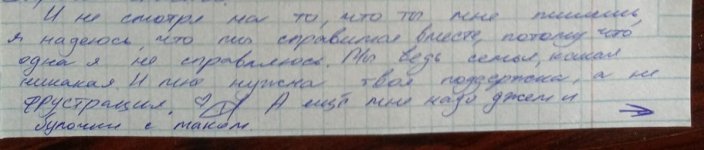 И не смотря на то, что ты мне пишешь,
я надеюсь, что мы справимся вместе, потому что
одна я не справляюсь. Мы ведь семья, какая
никакая. И мне нужна твоя поддержка, а не
фрустрация. А ещё мне надо джем и
булочки с маком.